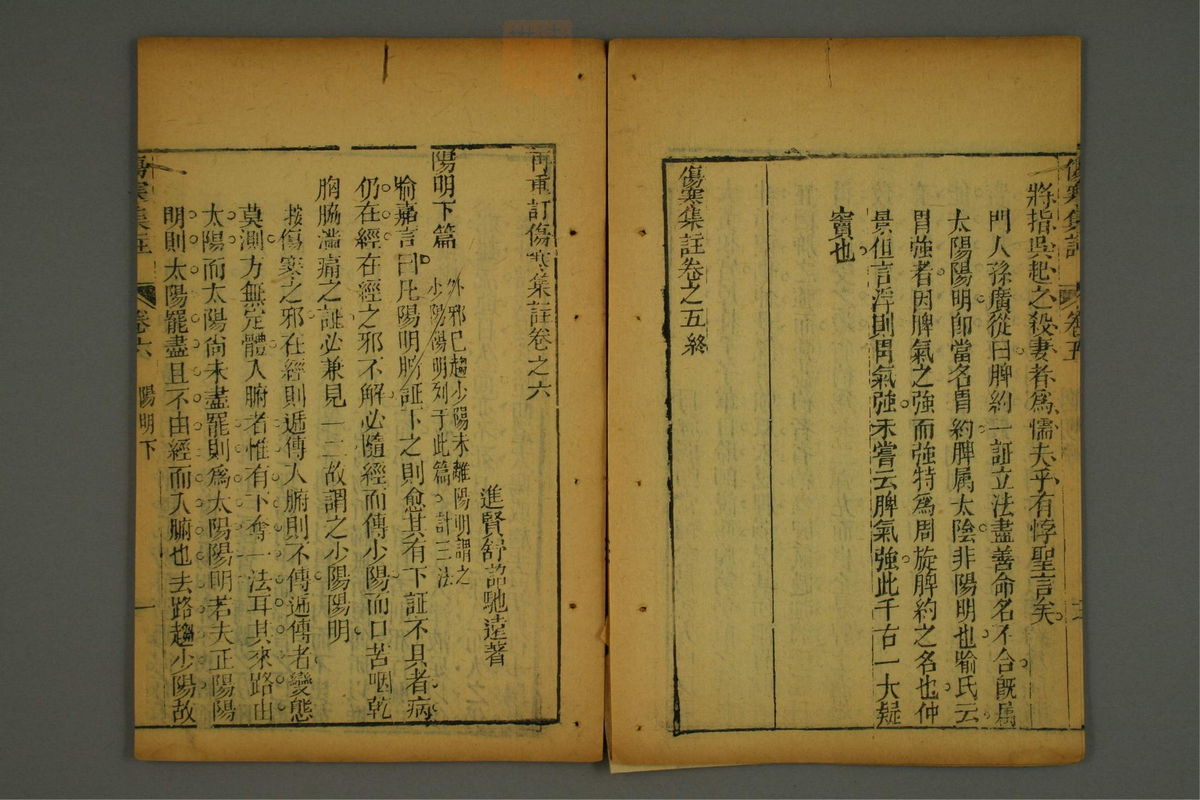 傷寒集註 卷五
將指吳起之殺妻者爲懦夫乎有悖聖言矣
門人孫廣從曰脾約一証立法盡善命名不合旣屬
太陽陽明卽當名胃約脾属太陰非陽明也喻氏云
胃強者因脾氣之強而強特爲周旋脾約之名也仲
景但言浮則胃氣強未嘗云脾氣強此千古一大疑
竇也
傷寒集註卷之五終
再重訂傷寒集註卷之六
進賢舒詔馳遠著
陽明下篇
外邪已趨少陽未離陽明謂之
少陽陽明列于此篇計三法
喻嘉言曰凡陽明腑証下之則愈其有下証不具者病
仍在經在經之邪不解必隨經而傳少陽而口苦咽乾
胸脇滿痛之証必兼見一二故謂之少陽陽明
按傷寒之邪在經則遞傳入腑則不傳遞傳者變態
莫測方無定體入腑者惟有下奪一法耳其來路由
太陽而太陽尚未盡罷則爲太陽陽明若夫正陽陽
明則太陽罷盡且不由經而入腑也去路趨少陽故
傷寒集註 卷六 陽明下 一